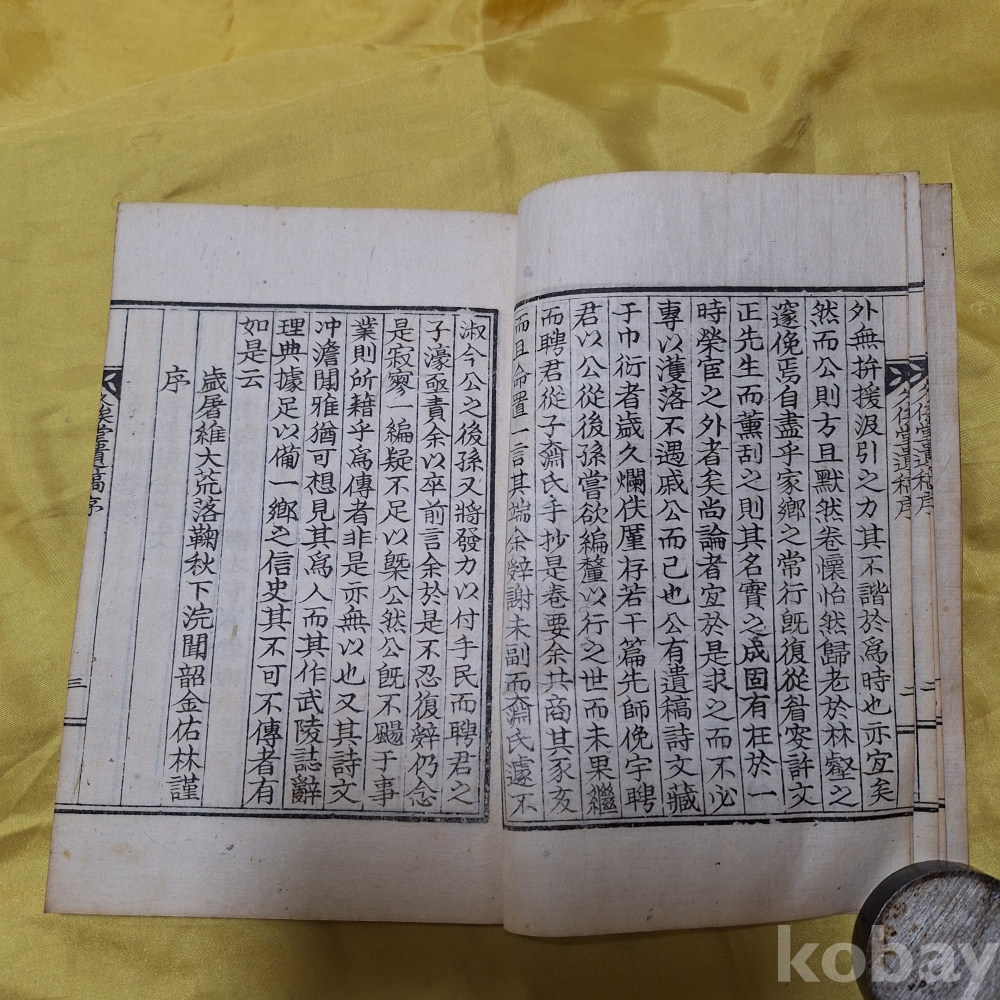 外無拚援汲引之力其不諧於爲時也亦宜矣
然而公則方且默然卷懷怡然歸老於林壑之
邃俛焉自盡乎家鄕之常行旣復從眘窓許文
正先生而薰刮之則其名實之成固有在於一
時榮宦之外者矣尙論者宜於是求之而不必
專以濩落不遇戚公而已也公有遺稿詩文藏
于巾衍者歲久爛佚厪存若干篇先師俛宇聘
君以公從後孫嘗欲編釐以行之世而未果繼
而聘君從子奫氏手抄是卷要余共商其豕亥
而且命置一言其端余辭謝未副而奫氏遽不
淑今公之後孫又將發力以付手民而聘君之
子濠亟責余以卒前言余於是不忍復辭仍念
是寂寥一編疑不足以槩公然公旣不颺于事
業則所藉乎爲傳者非是亦無以也又其詩文
冲澹閒雅猶可想見其爲人而其作武陵誌辭
理典據足以備一鄕之信史其不可不傳者有
如是云
歲屠維大荒落鞠秋下浣聞韶金佑林謹
序
堂遺稿序
三
堂遺稿序
二
二
kobay